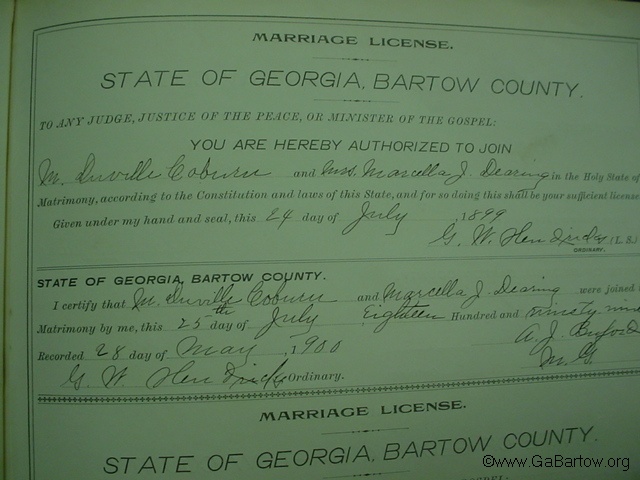 MARRIAGE LICENSE.
STATE OF GEORGIA, BARTOW COUNTY.
TO ANY JUDGE, JUSTICE OF THE PEACE, OR MINISTER OF THE GOSPEL:
YOU ARE HEREBY AUTHORIZED TO JOIN
M. Duville Coburn and Mrs. Marcella J. Dearing in the Holy State of
Matrimony, according to the Constitution and laws of this State, and for so doing this shall be your sufficient license
Given under my hand and seal, this 24 day of July, 1899
G. W. Hendricks (L. S.)
ORDINARY.
STATE OF GEORGIA, BARTOW COUNTY.
I certify that M. Duville Coburn and Marcella J. Dearing were joined
Matrimony by me, this 25th day of July Eighteen Hundred and ninety nine
Recorded 28 day of May, 1900 A. J. Buford
G. W. Hendricks Ordinary. M. G
MARRIAGE LICENSE.
STATE OF GEORGIA, BARTOW COUNTY.
©www.GaBartow.org